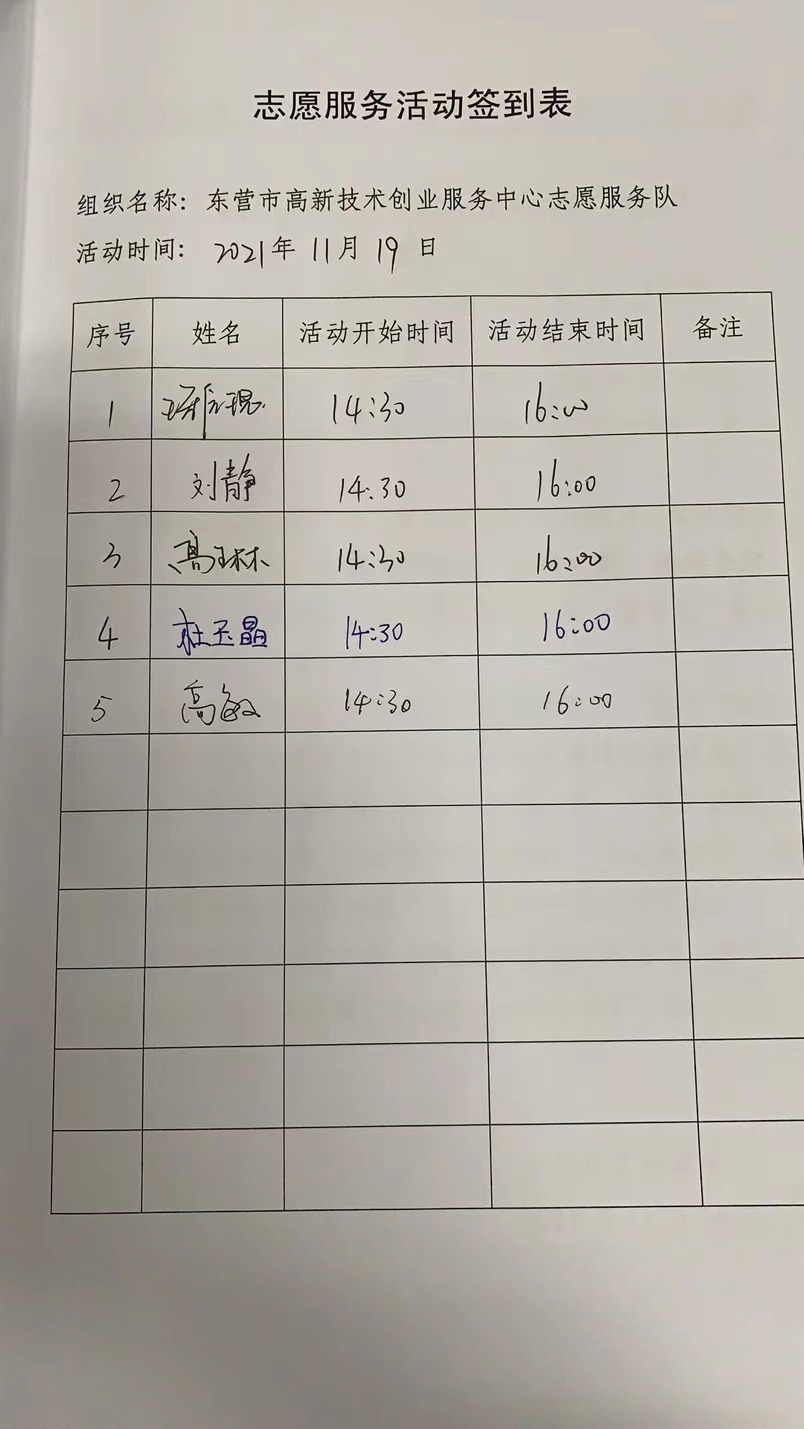 志愿服务活动签到表
组织名称：东营市高新技术创业服务中心志愿服务队
活动时间：2021年11月19日
序号 姓名 活动开始时间 活动结束时间 备注
1 14:30 16:00
2 刘静 14:30 16:00
3 高琳 14:30 16:00
4 杜玉晶 14:30 16:00
5 高敏 14:30 16:00